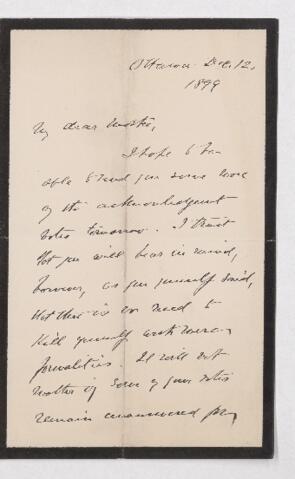 Ottawa Dec. 12.
1899
My dear Mother,
I hope to be
able to send you some more
of the acknowledgment
notes tomorrow. I trust
that you will bear in mind,
however, as you yourself said,
that there is no need to
kill yourself with
formalities. It will not
matter if some of your notes
remain unanswered for